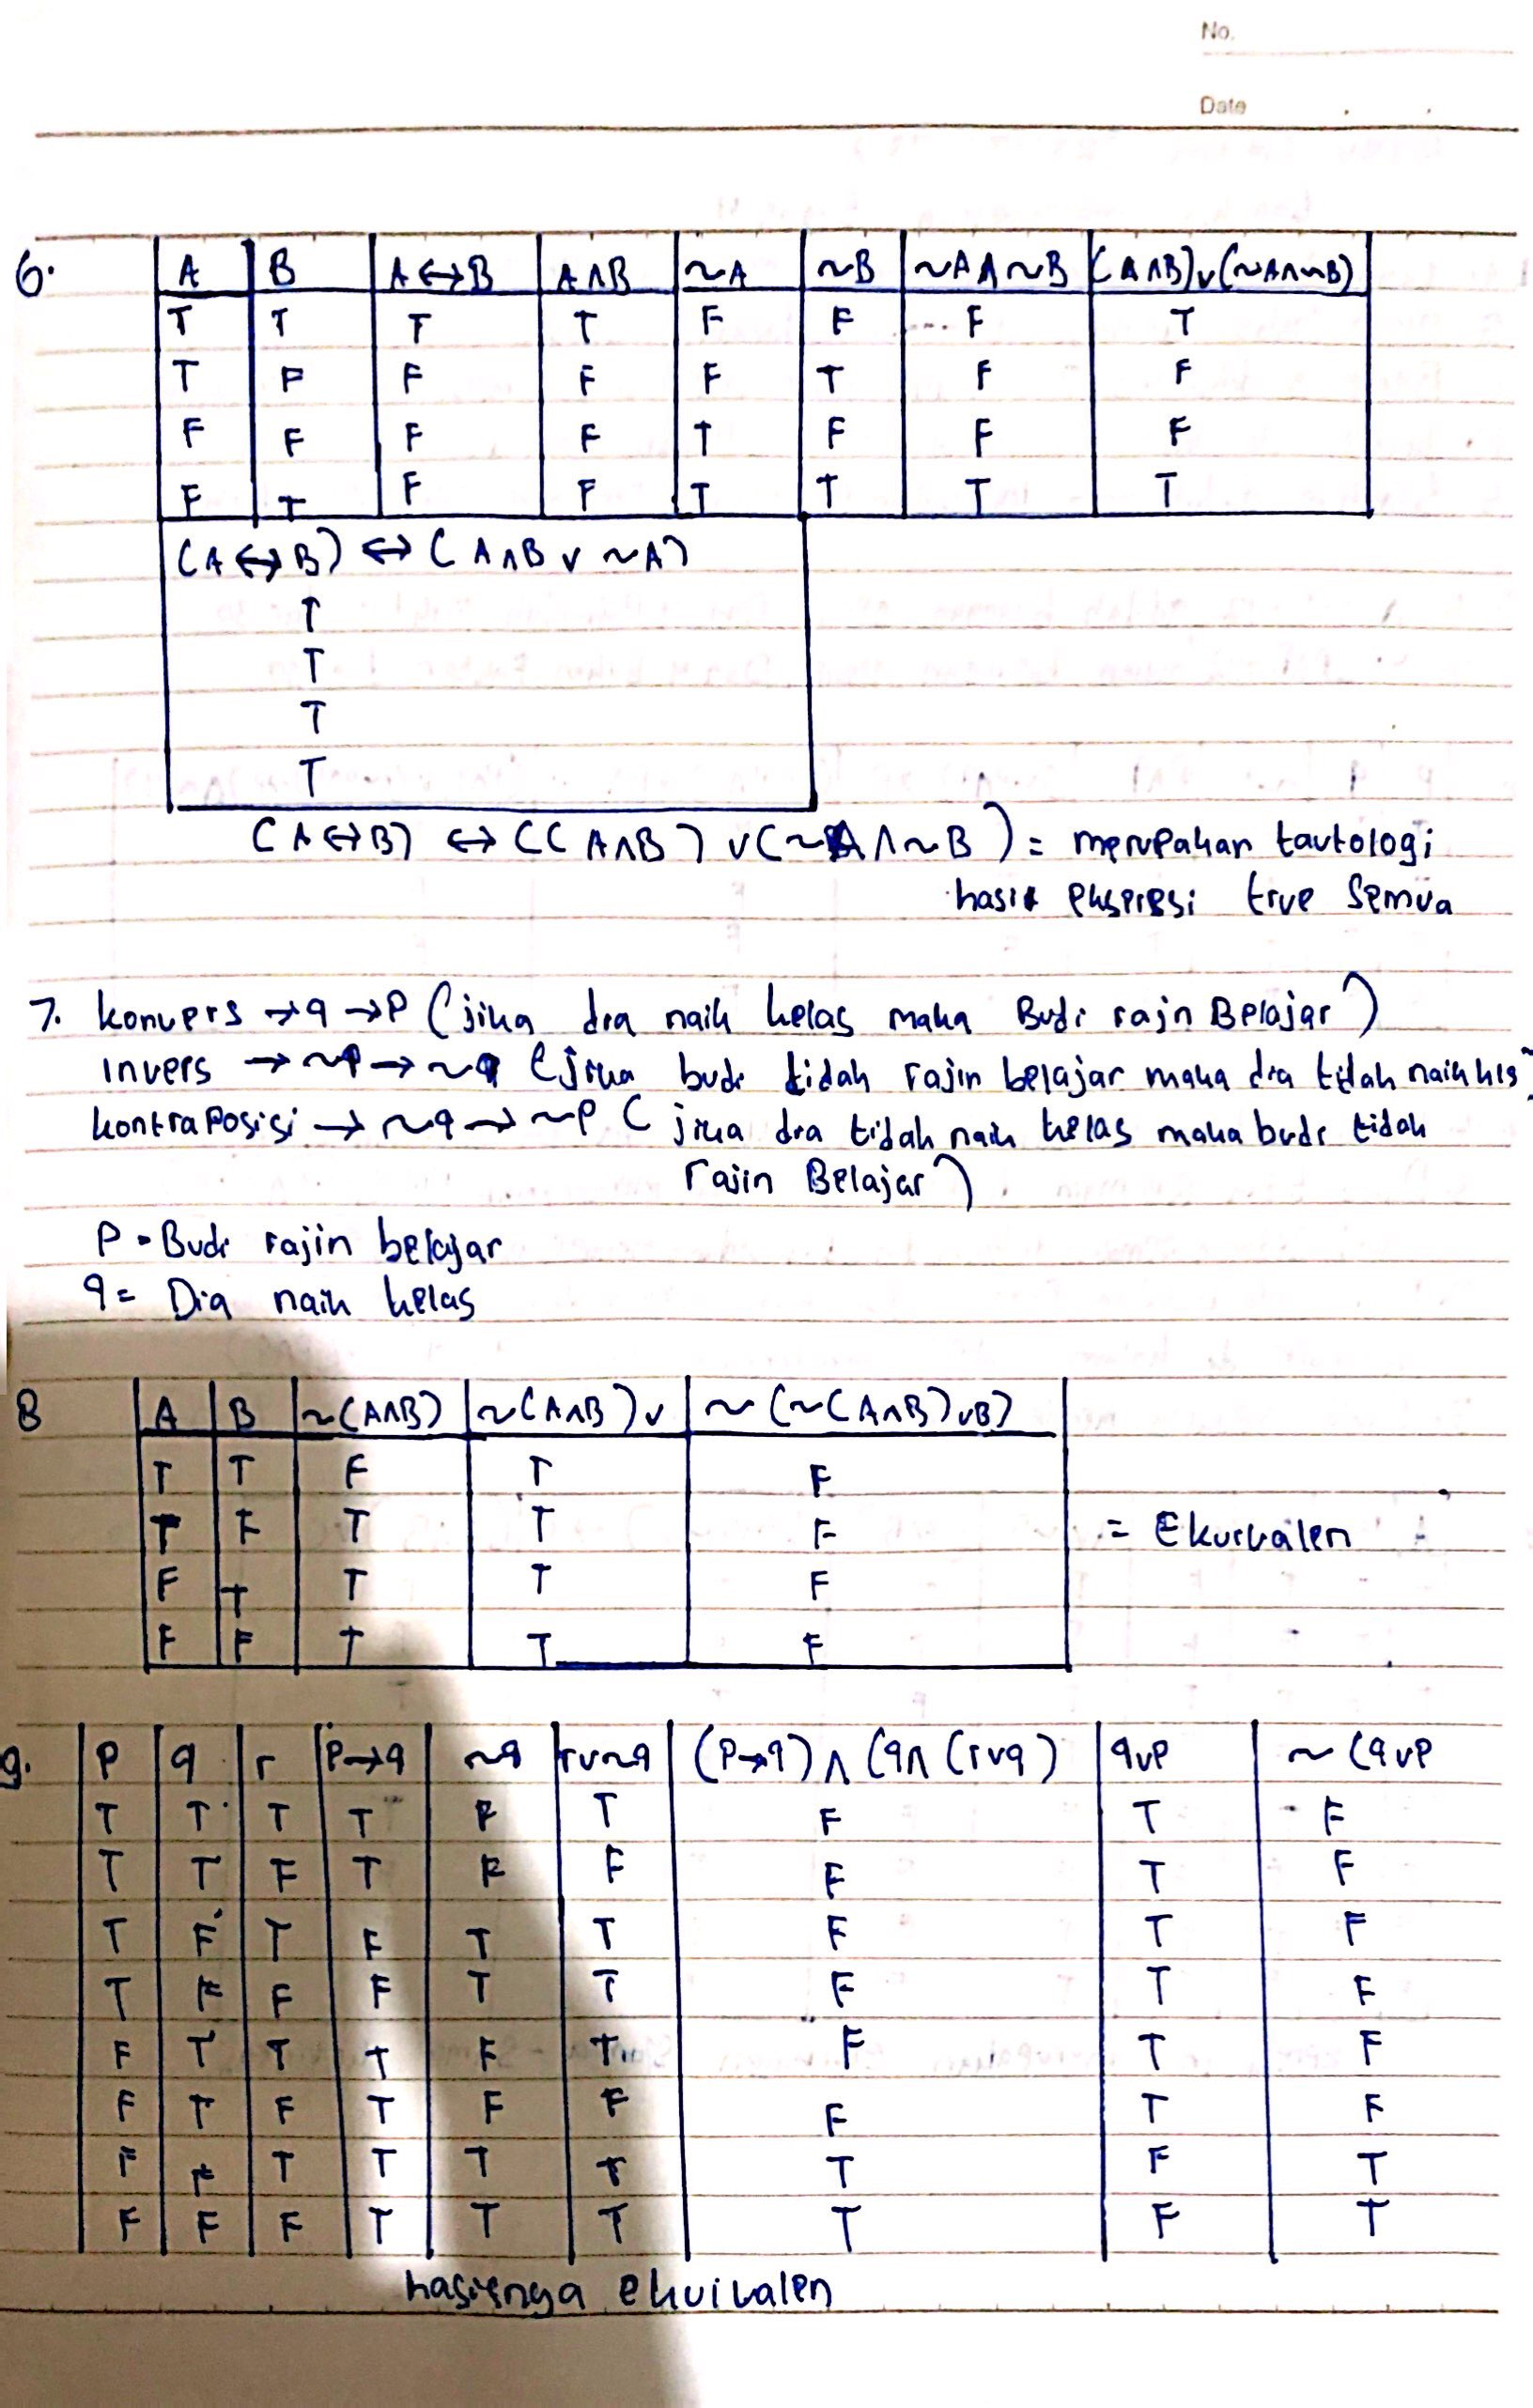 No.
Date
6. A B A↔B A∧B ~A ~B ~A∧~B (A∧B)∨(~A∧~B)
T T T T F F F T
T F F F F T F F
F F F F T F F F
F T F F T T T T
(A↔B) ↔ (A∧B ∨ ~A)
T
T
T
T
(A↔B) ↔ ((A∧B) ∨(~A∧~B) = merupakan tautologi
hasil ekspresi true semua
7. konvers → q → p (jika dia naik kelas maka Budi rajn Belajar)
invers → ~p → ~q (jika budi tidak rajin belajar maka dia tidak naik kls)
kontraposisi → ~q → ~p ( jika dia tidak naik kelas maka budi tidak
rajin Belajar)
P = Budi rajin belajar
q = Dia naik kelas
8 A B ~(A∧B) ~(A∧B)∨ ~(~(A∧B)∨B)
T T F T F
T F T T F = Ekuivalen
F T T T F
F F T T F
9. P q r P→q ~q r∨~q (P→q)∧(q∧(r∨q) q∨P ~(q∨P
T T T T F T F T F
T T F T F F F T F
T F T F T T F T F
T F F F T T F T F
F T T T F T F T F
F T F T F F F T F
F F T T T T T F T
F F F T T T T F T
hasilnya ekuivalen